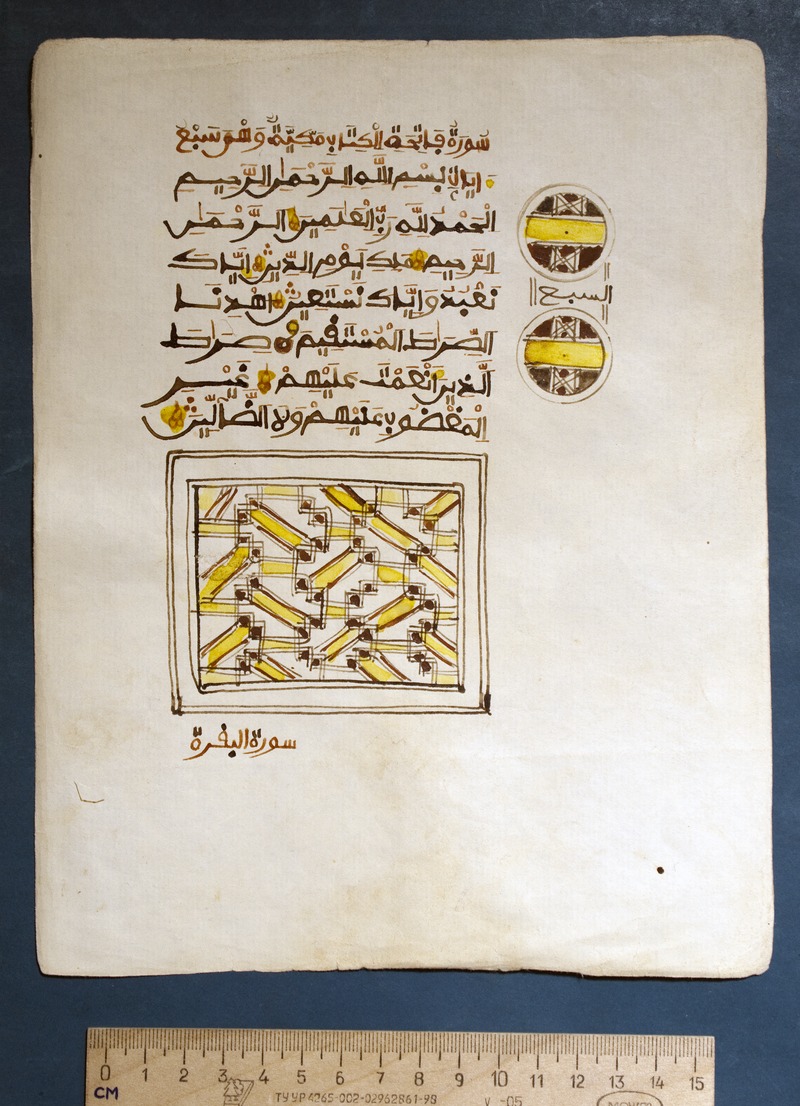 سورة فاتحة الكتاب مكية وهو سبع
ايات بسم الله الرحمن الرحيم
الحمد لله رب العلمين الرحمن
الرحيم ملك يوم الدين اياك
نعبد واياك نستعين اهدنا
الصراط المستقيم صراط
الذين انعمت عليهم غير
المغضوب عليهم ولا الضالين
السبع
سورة البقرة
CM 0 1 2 3 4 5 6 7 8 9 10 11 12 13 14 15
ТУ УР 4265-002-02962861-98